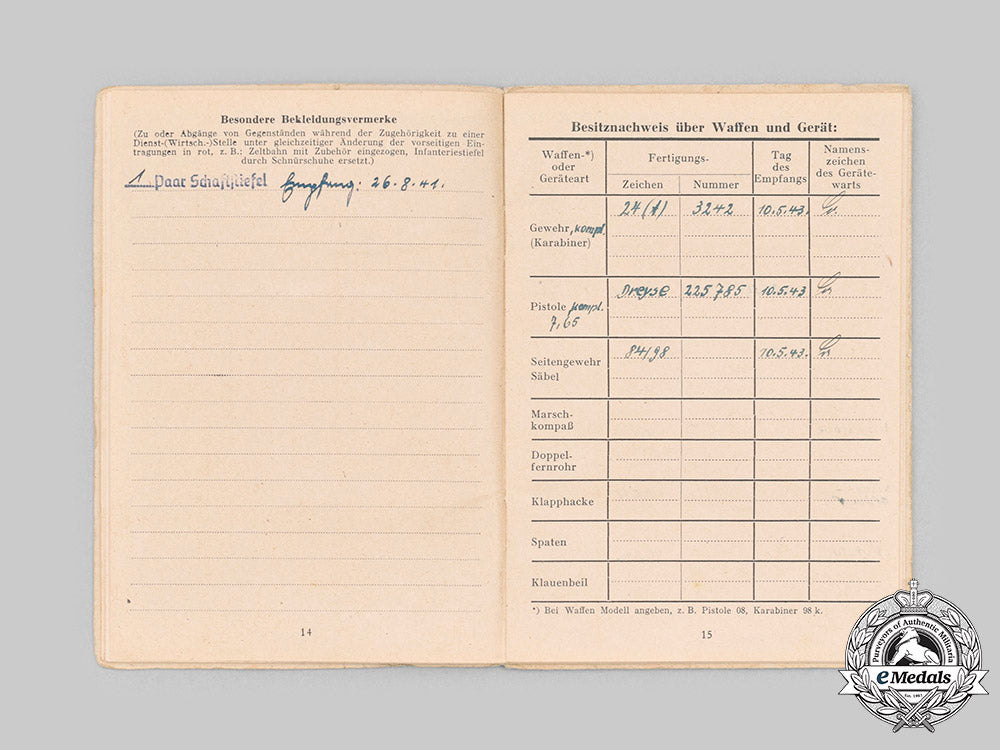 Besondere Bekleidungsvermerke
(Zu oder Abgänge von Gegenständen während der Zugehörigkeit zu einer
Dienst-(Wirtsch.-)Stelle unter gleichzeitiger Änderung der vorseitigen Ein-
tragungen in rot, z. B.: Zeltbahn mit Zubehör eingezogen, Infanteriestiefel
durch Schnürschuhe ersetzt.)
1 Paar Schaftstiefel Empfang: 26.8.41.
14
Besitznachweis über Waffen und Gerät:
Waffen-*) oder Geräteart
Fertigungs-
Zeichen
Nummer
Tag des Empfangs
Namens-zeichen des Geräte-warts
Gewehr, kompl. (Karabiner) 24(t) 3242 10.5.43.
Pistole kompl. 7,65 Dreyse 225785 10.5.43
Seitengewehr Säbel 84/98 10.5.43.
Marsch-
kompaß
Doppel-
fernrohr
Klapphacke
Spaten
Klauenbeil
*) Bei Waffen Modell angeben, z. B. Pistole 08, Karabiner 98 k.
15
Purveyors of Authentic Militaria
eMedals